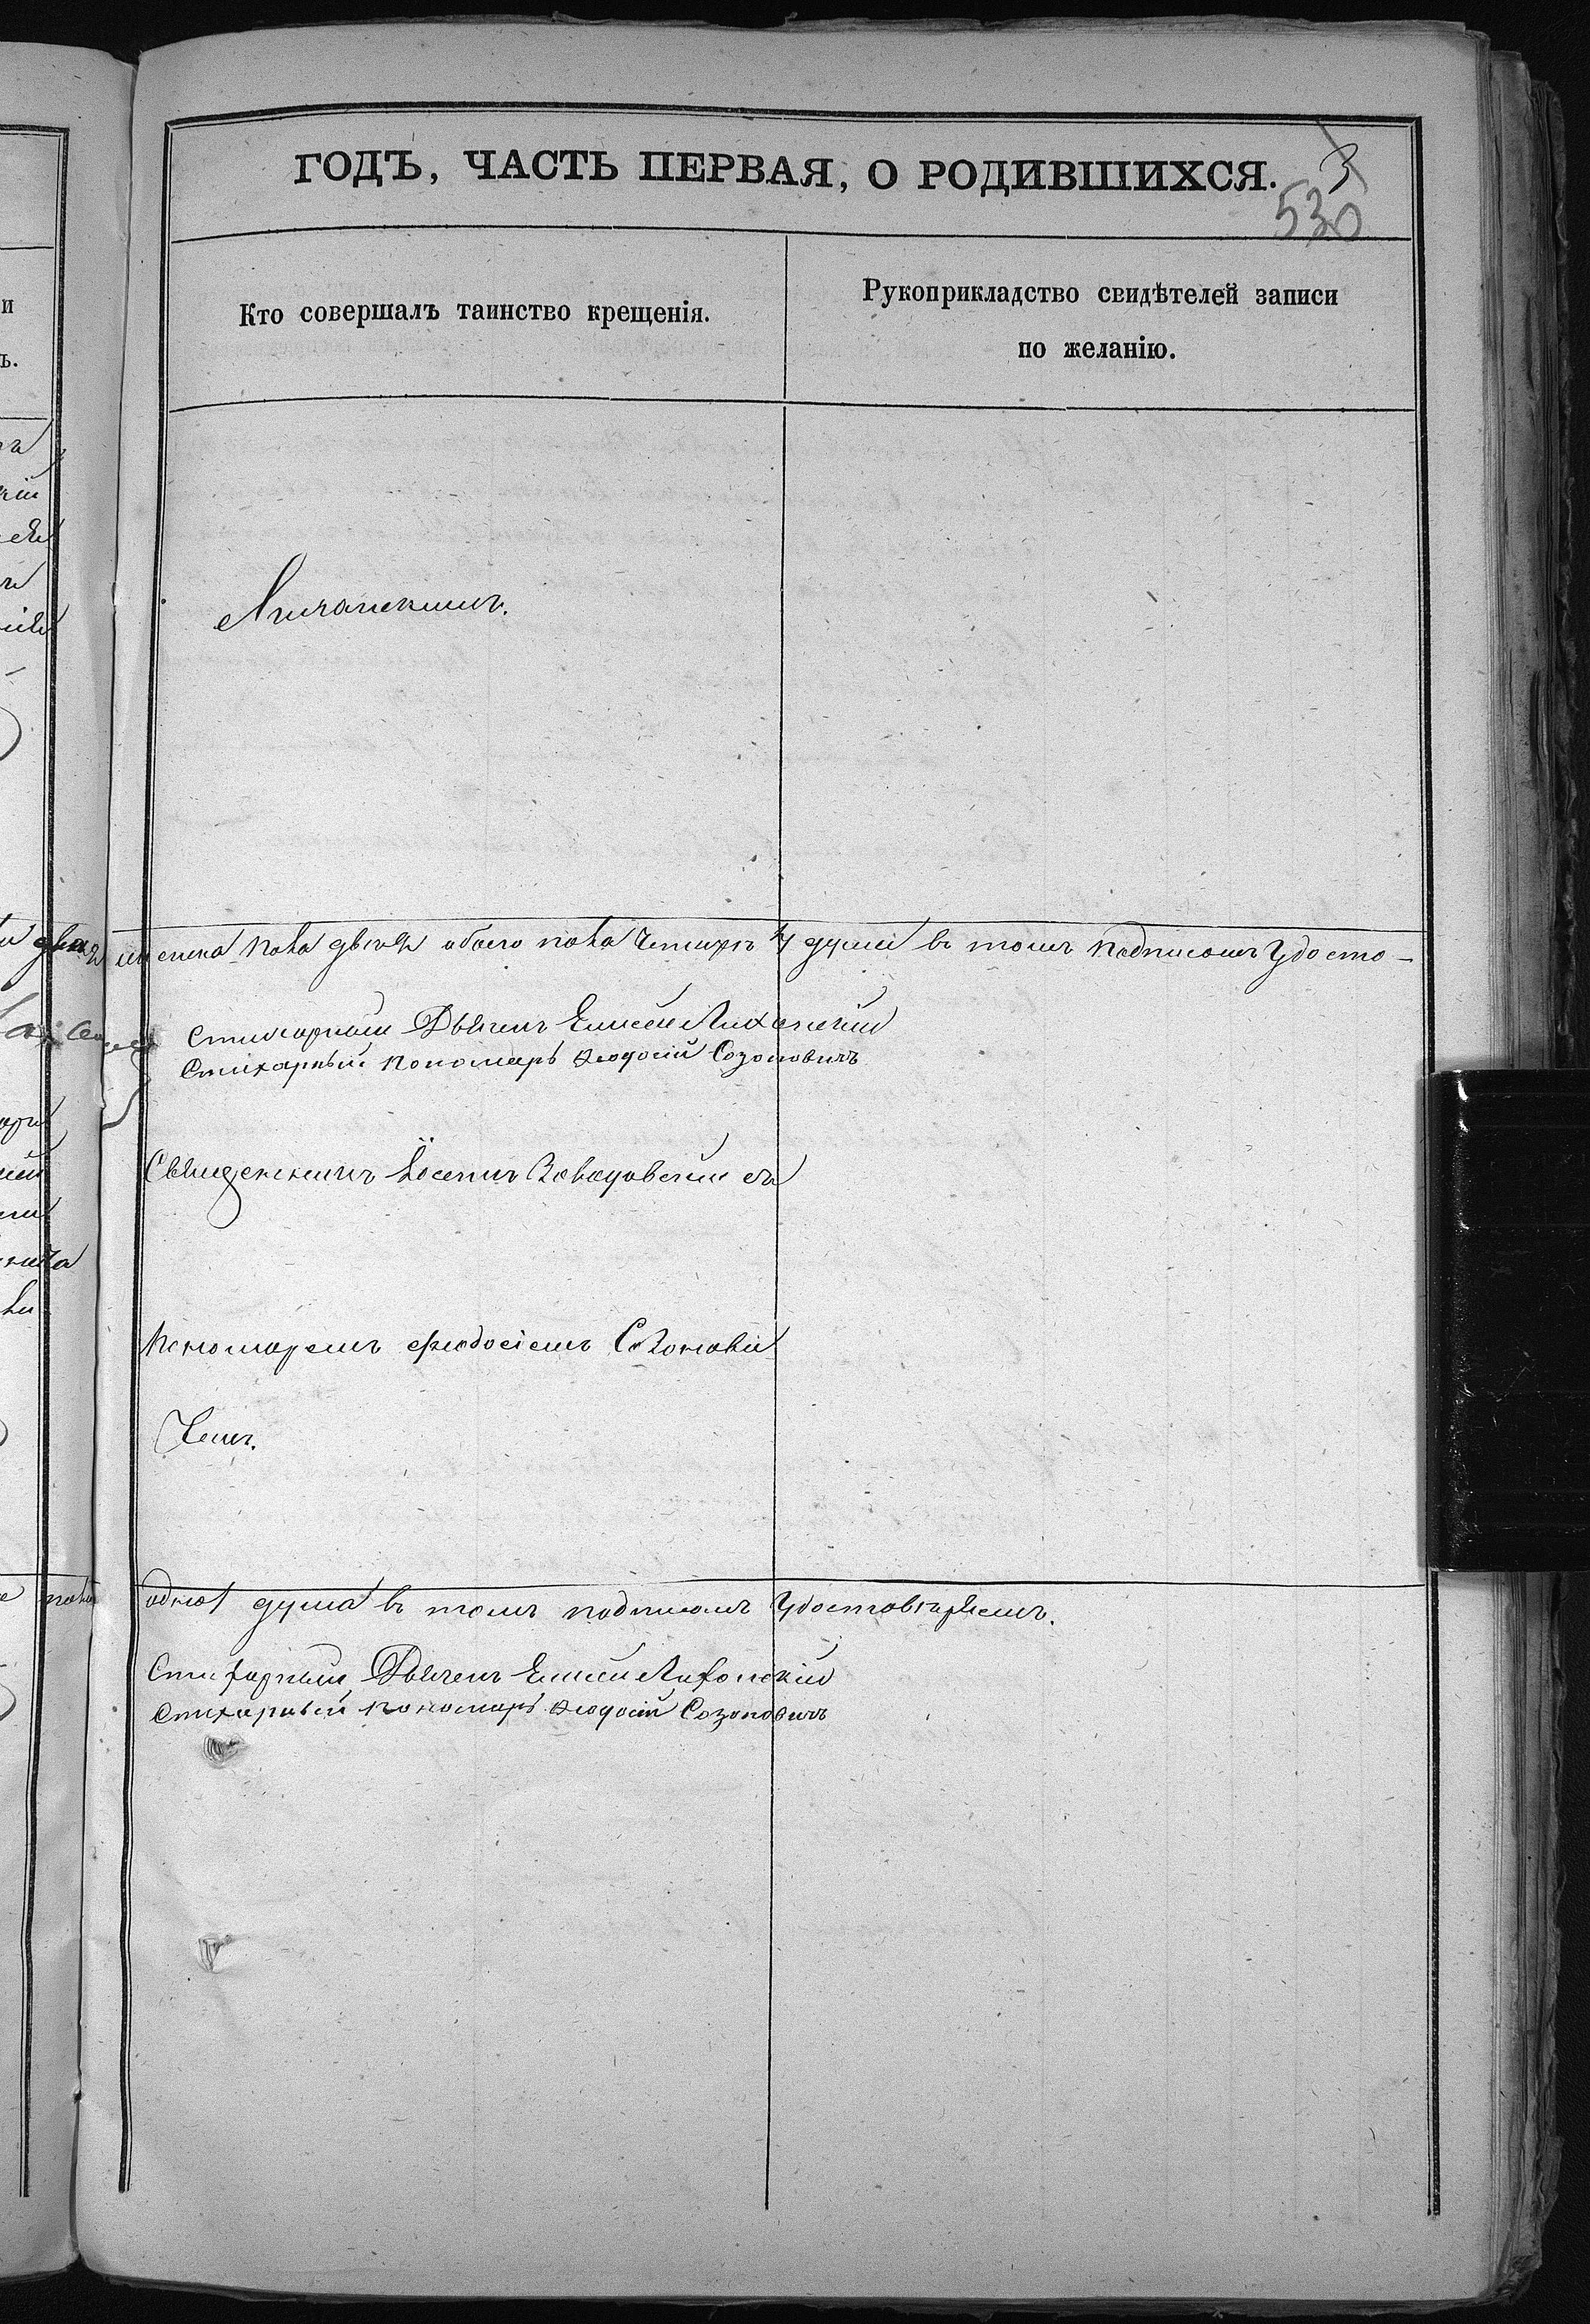 ГОДЪ, ЧАСТЬ ПЕРВАЯ, О РОДИВШИХСЯ. 3
530
Кто совершалъ таинство крещенія.
Рукоприкладство свидѣтелей записи
по желанію.
женска пола двѣ обоего пола четыре 4 души въ томъ подписомъ Удосто-
Стихарный Дьячекъ Елисей Лихонскій
Стихарный пономарь Ѳеодосій Созоновичъ
Священникъ Іосепъ Заводовскій съ
Пономаремъ Феодосіемъ Созонови
чемъ.
одна душа въ томъ подписомъ Удостовѣряемъ.
Стихарный Дьячекъ Елисей Лихонскій
Стихарный пономарь Ѳеодосій Созоновичъ